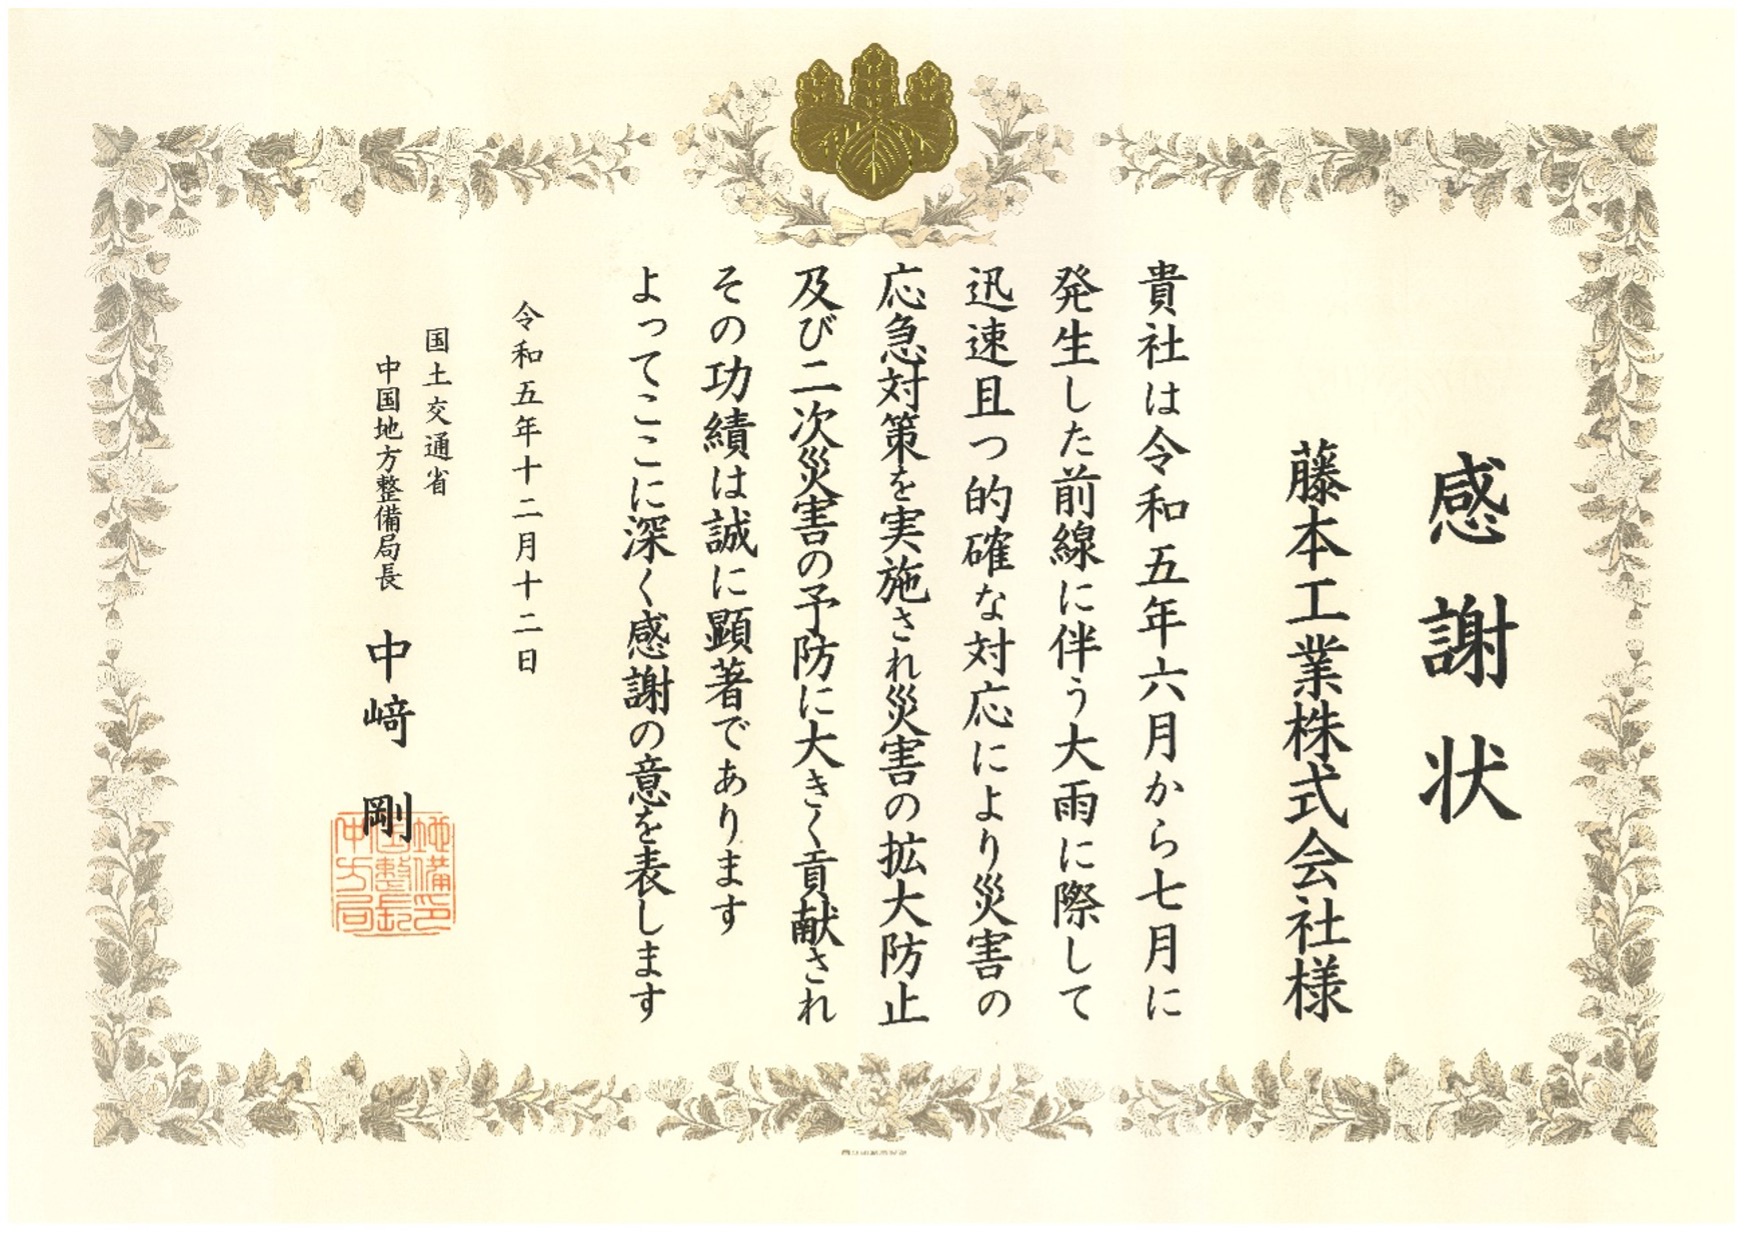 感謝状
藤本工業株式会社様
貴社は令和五年六月から七月に
発生した前線に伴う大雨に際して
迅速且つ的確な対応により災害の
応急対策を実施され災害の拡大防止
及び二次災害の予防に大きく貢献され
その功績は誠に顕著であります
よってここに深く感謝の意を表します
令和五年十二月十二日
国土交通省
中国地方整備局長 中﨑 剛
中国地方整備局長印